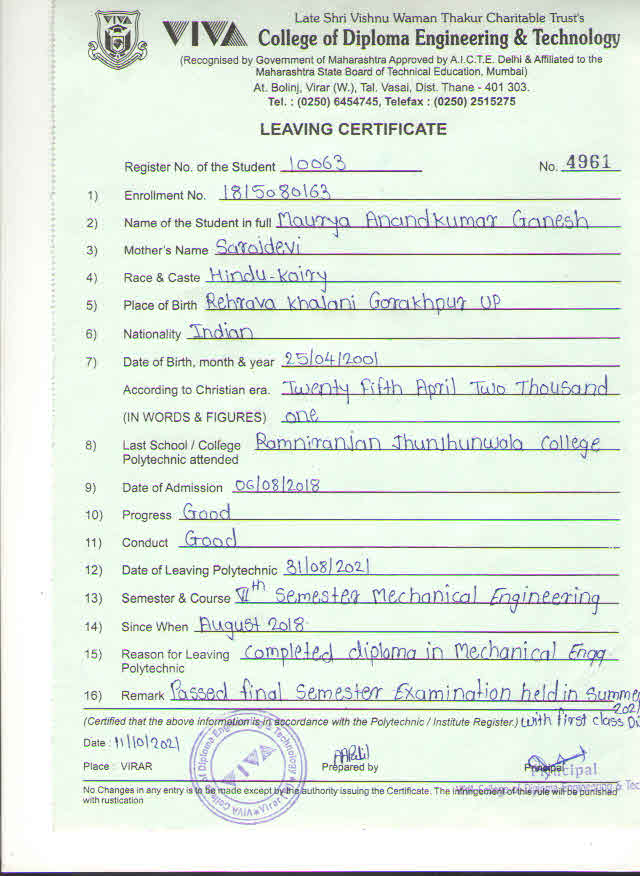 VIVA
Late Shri Vishnu Waman Thakur Charitable Trust's
VIVA College of Diploma Engineering & Technology
(Recognised by Government of Maharashtra Approved by A.I.C.T.E. Delhi & Affiliated to the
Maharashtra State Board of Technical Education, Mumbai)
At. Bolinj, Virar (W.), Tal. Vasai, Dist. Thane - 401 303.
Tel. : (0250) 6454745, Telefax : (0250) 2515275
LEAVING CERTIFICATE
Register No. of the Student 10063 No. 4961
1) Enrollment No. 1815080163
2) Name of the Student in full Maurya Anandkumar Ganesh
3) Mother's Name Sarojdevi
4) Race & Caste Hindu-Koiry
5) Place of Birth Rehrava Khalani Gorakhpur UP
6) Nationality Indian
7) Date of Birth, month & year 25/04/2001
According to Christian era. Twenty Fifth April Two Thousand
(IN WORDS & FIGURES) one
8) Last School / College Ramniranjan Jhunjhunwala College
Polytechnic attended
9) Date of Admission 06/08/2018
10) Progress Good
11) Conduct Good
12) Date of Leaving Polytechnic 31/08/2021
13) Semester & Course VIth Semester Mechanical Engineering
14) Since When August 2018
15) Reason for Leaving completed diploma in Mechanical Engg.
Polytechnic
16) Remark Passed final Semester Examination held in Summe
2021
(Certified that the above information is in accordance with the Polytechnic / Institute Register.) with first class Di
Date : 11/10/2021
Place : VIRAR Prepared by Principal
Principal
VIVA College of Diploma Engineering & Tec
No Changes in any entry is to be made except by the authority issuing the Certificate. The infringement of this rule will be punished
with rustication